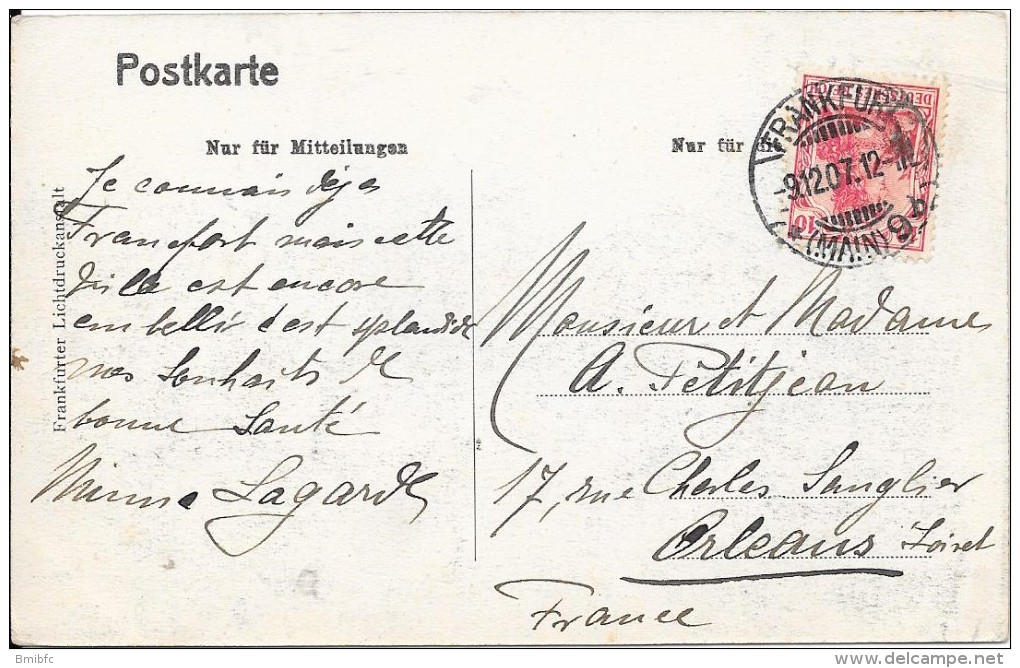 Postkarte
Nur für Mitteilungen
Nur für die
Je connais déja
Francfort mais cette
ville est encore
embellir c'est splendide
nos souhaits de
bonne santé
Minna Lagarde
Frankfurter Lichtdruckanstalt
DEUTSCHES REICH
10 10
FRANKFURT
-9.12.07.12-
* (MAIN) 9
Monsieur et Madame
A. Petitjean
17, rue Charles Sanglier
Orleans Loiret
France
Bmibfc
delcampe.net